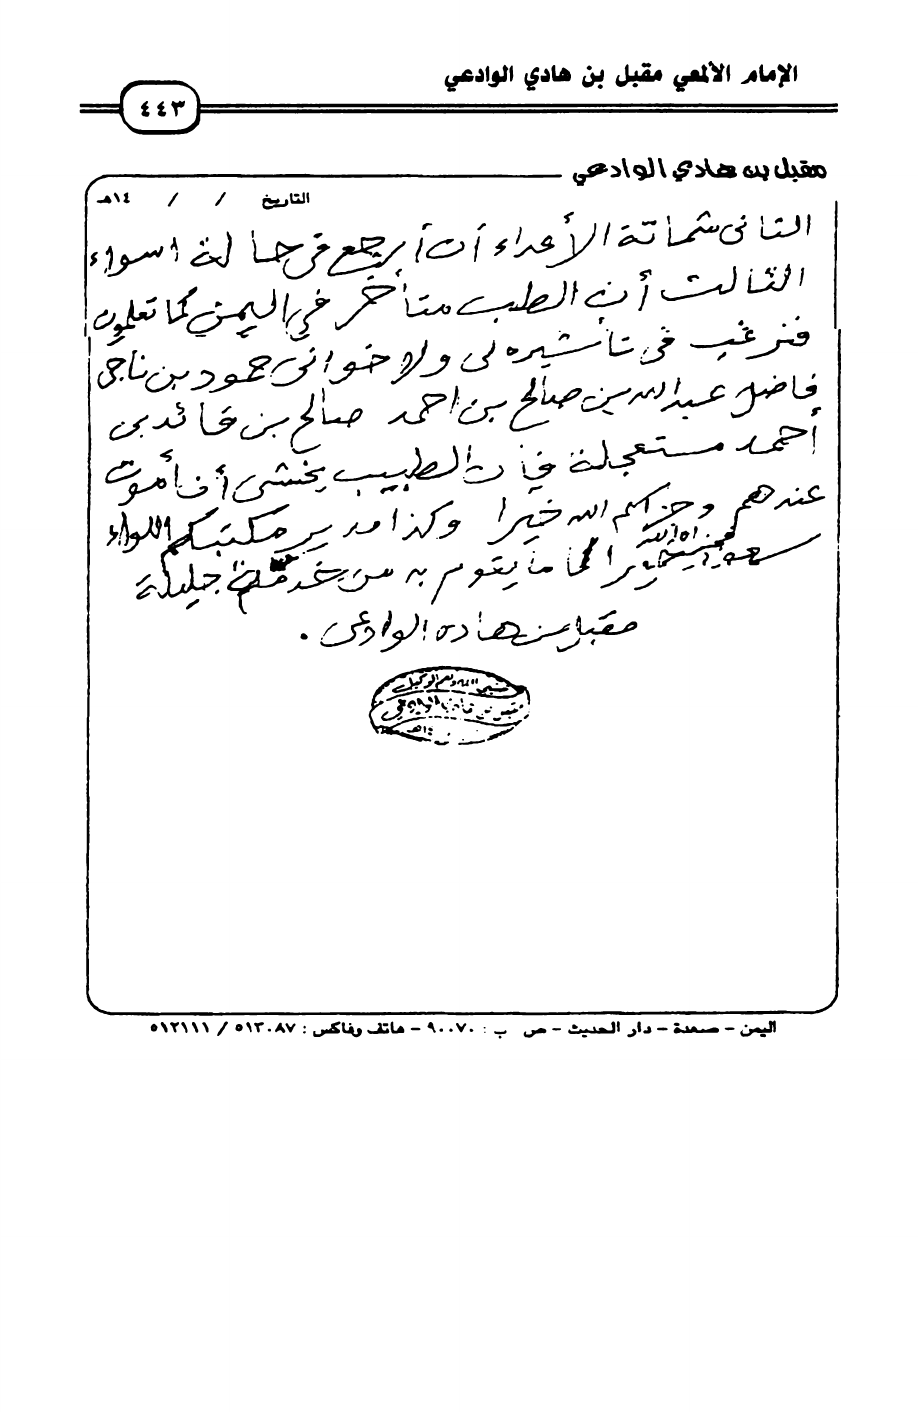 الإمام الألمعي مقبل بن هادي الوادعي
٤٤٣
مقبل بن هادي الوادعي
التاريخ / / ١٤هـ
الثاني شماتة الأعداء أن أرجع في حالة اسواء
الثالث أن الطب متأخر في اليمن كما تعلمون
فنرغب في تأشيره لى ولاخوانى حمود بن ناجى
فاضل عبد الله بن صالح بن احمد صالح بن قائد بن
أحمد مستعجلة فإن الطبيب يخشى أن أموت
عندهم وجزاكم الله خيرا وكذا مدير مكتبكم اللواء
سعود جزاه الله خيرا لما يقوم به من خدمة جليلة
مقبل بن هادى الوادعى .
حسبي الله ونعم الوكيل
مقبل بن هادي الوادعي
١٤هـ
اليمن - صعدة - دار الحديث - ص ب : ٩٠٠٧٠ - هاتف وفاكس : ٥١٣٠٨٧ / ٥١٢١١١